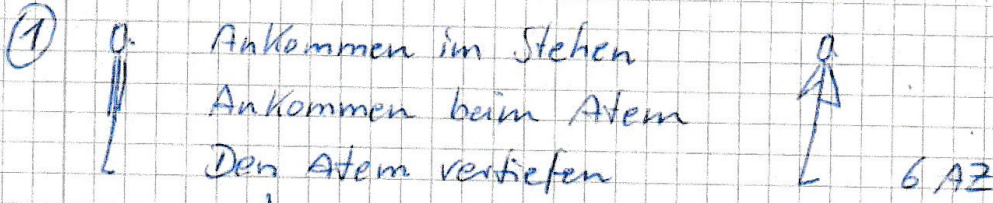 ① Ankommen im Stehen
Ankommen beim Atem
Den Atem vertiefen 6 AZ